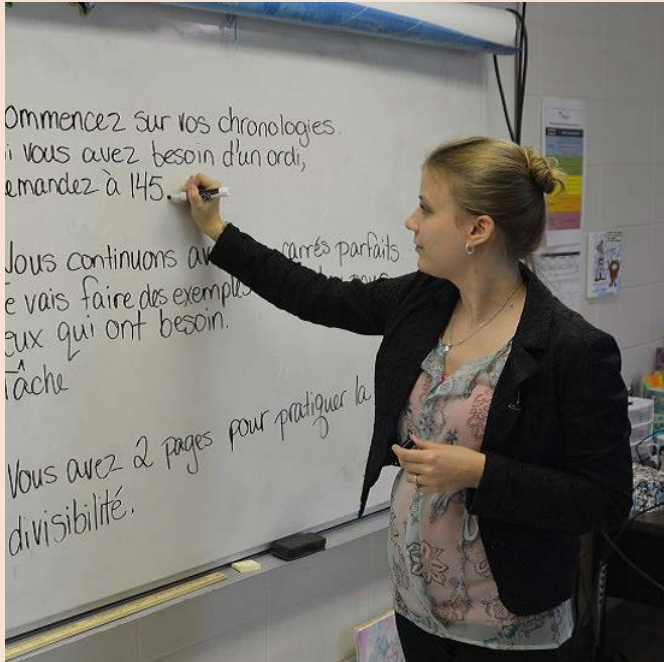 ommencez sur vos chronologies.
i vous avez besoin d'un ordi,
emandez à 145.
Vous continuons av carrés parfaits.
e vais faire des exemples
eux qui ont besoin.
Tâche
Vous avez 2 pages pour pratiquer la
divisibilité.